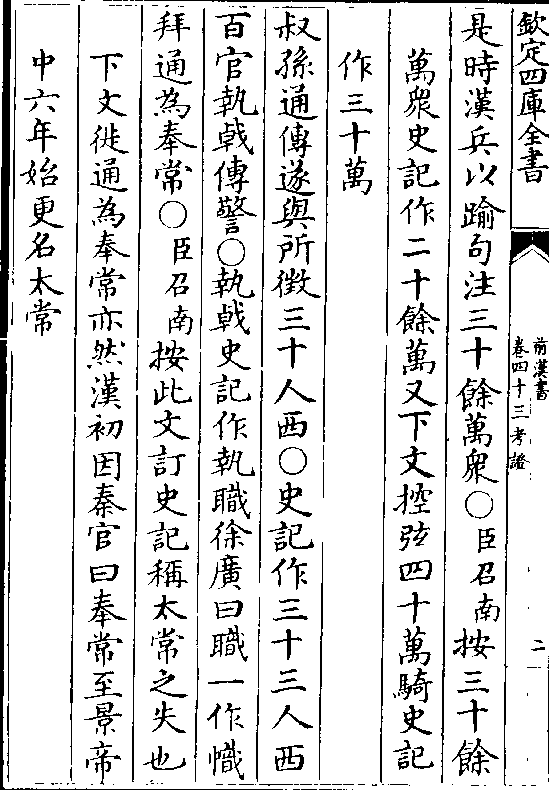 欽定四庫全書
前漢書
卷四十三考證
二
是時漢兵以踰句注三十餘萬衆○臣召南按三十餘
萬衆史記作二十餘萬又下文控弦四十萬騎史記
作三十萬
叔孫通傳遂與所徵三十人西○史記作三十三人西
百官執戟傳警○執戟史記作執職徐廣曰職一作幟
拜通為奉常○臣召南按此文訂史記稱太常之失也
下文徙通為奉常亦然漢初因秦官曰奉常至景帝
中六年始更名太常